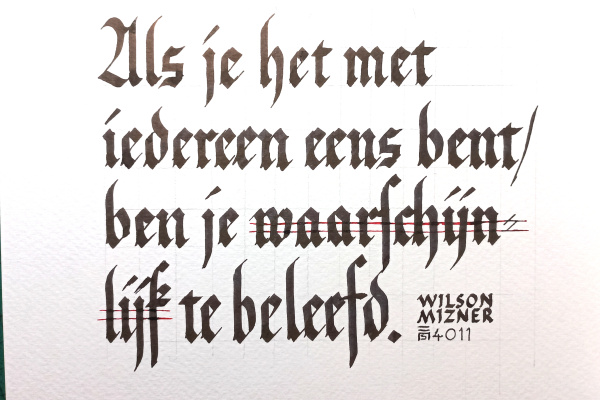 Als je het met
iedereen eens bent/
ben je waarschijn-
lijk te beleefd.
WILSON
MIZNER
4011